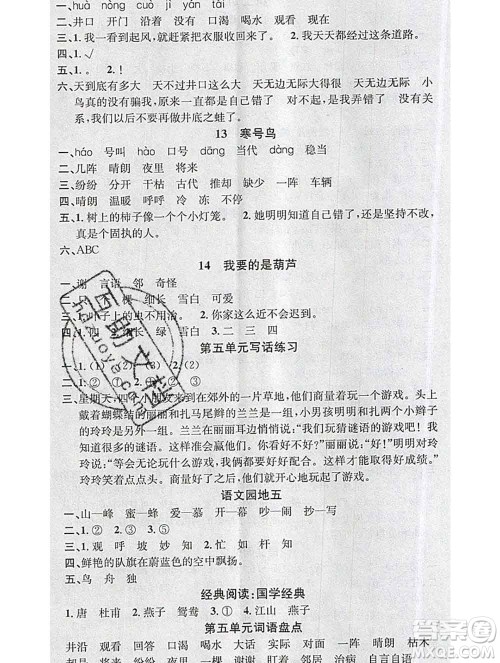 一、huà nòng cuò jì yán tái
二、井口 开门 沿着 没有 口渴 喝水 观看 现在
三、1. 我一看到起风,就赶紧把衣服收回来了。 2. 我今天没有走过这条道路。
四、1.√
五、1. 。 2. !
六、天到底有多大 天不过井口这么大 天无边无际 天无边无际 小
鸟真的没有骗我,原来一直都是自己错了 对不起,是我弄错了 我以
后一定不要再做井底之蛙了。
13 寒号鸟
一、háo 号叫 hào 口号 dāng 当代 dàng 稳当
二、几阵 晴朗 夜里 将来
三、纷纷 分开 干枯 古代 推却 缺少 一阵 车辆
四、晴朗 温暖 呼呼 冷 冻 不停
五、1. 树上的柿子像一个个小灯笼。 2. 她明明知道自己错了,还是坚持不改,
真是个固执的人。
六、ABC
14 我要的是葫芦
一、谢 言语 邻 奇怪
棵 细长 雪白 可爱
叶子上的虫不用治。 2. 你家这么近不会迟到。
雪白 3. 二 三 四
第五单元写话练习
一、1. (2) (2)
二、1. ② ① 2. ② ①
三、星期天,四个小朋友来到郊外的一片草地,他们商量着玩一个游戏。头上
戴着蝴蝶结的丽丽和扎马尾辫的兰兰是一组,小男孩明明和扎两个小辫子
的玲玲是另外一组。兰兰对大家说:“我们玩猜谜语的游戏吧!我
知道很多的谜语。这样准能赢他们。”丽丽开心地说:“好!”明明对玲
玲说:“等会无论玩什么游戏,我们都要努力,我相信我们一定会赢的。”
玲玲笑着点点头。商量好了之后,他们就开心地玩起了游戏。
语文园地五
一、山—峰 蜜—蜂 爱—慕 开—幕 坟—墓 抄—写
二、1. ① ② 2. ③ ① ②
三、1. 观 呼 坡 妙 知 2. 沿 渴 洗 沉
四、鲜艳的队旗在蔚蓝色的空中飘扬。
五、鸟 舟 独
经典阅读:国学经典
1. 唐 杜甫 2. 燕子 鸳鸯 4. 江山 燕子
第五单元词语盘点
井沿 观看 回答 口渴 喝水 大话 实际 对面 一阵 晴朗 枯木